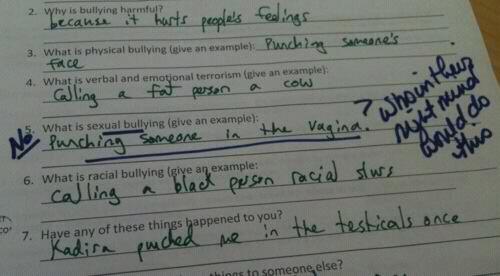 2. Why is bullying harmful?
because it hurts people's feelings
3. What is physical bullying (give an example): Punching someone's
face
4. What is verbal and emotional terrorism (give an example):
Calling a fat person a cow
No 5. What is sexual bullying (give an example):
Punching someone in the vagina.
? who in their
right mind
would do
this
6. What is racial bullying (give an example:
calling a black person racial slurs
7. Have any of these things happened to you?
Kadira puched me in the testicals once
things to someone else?